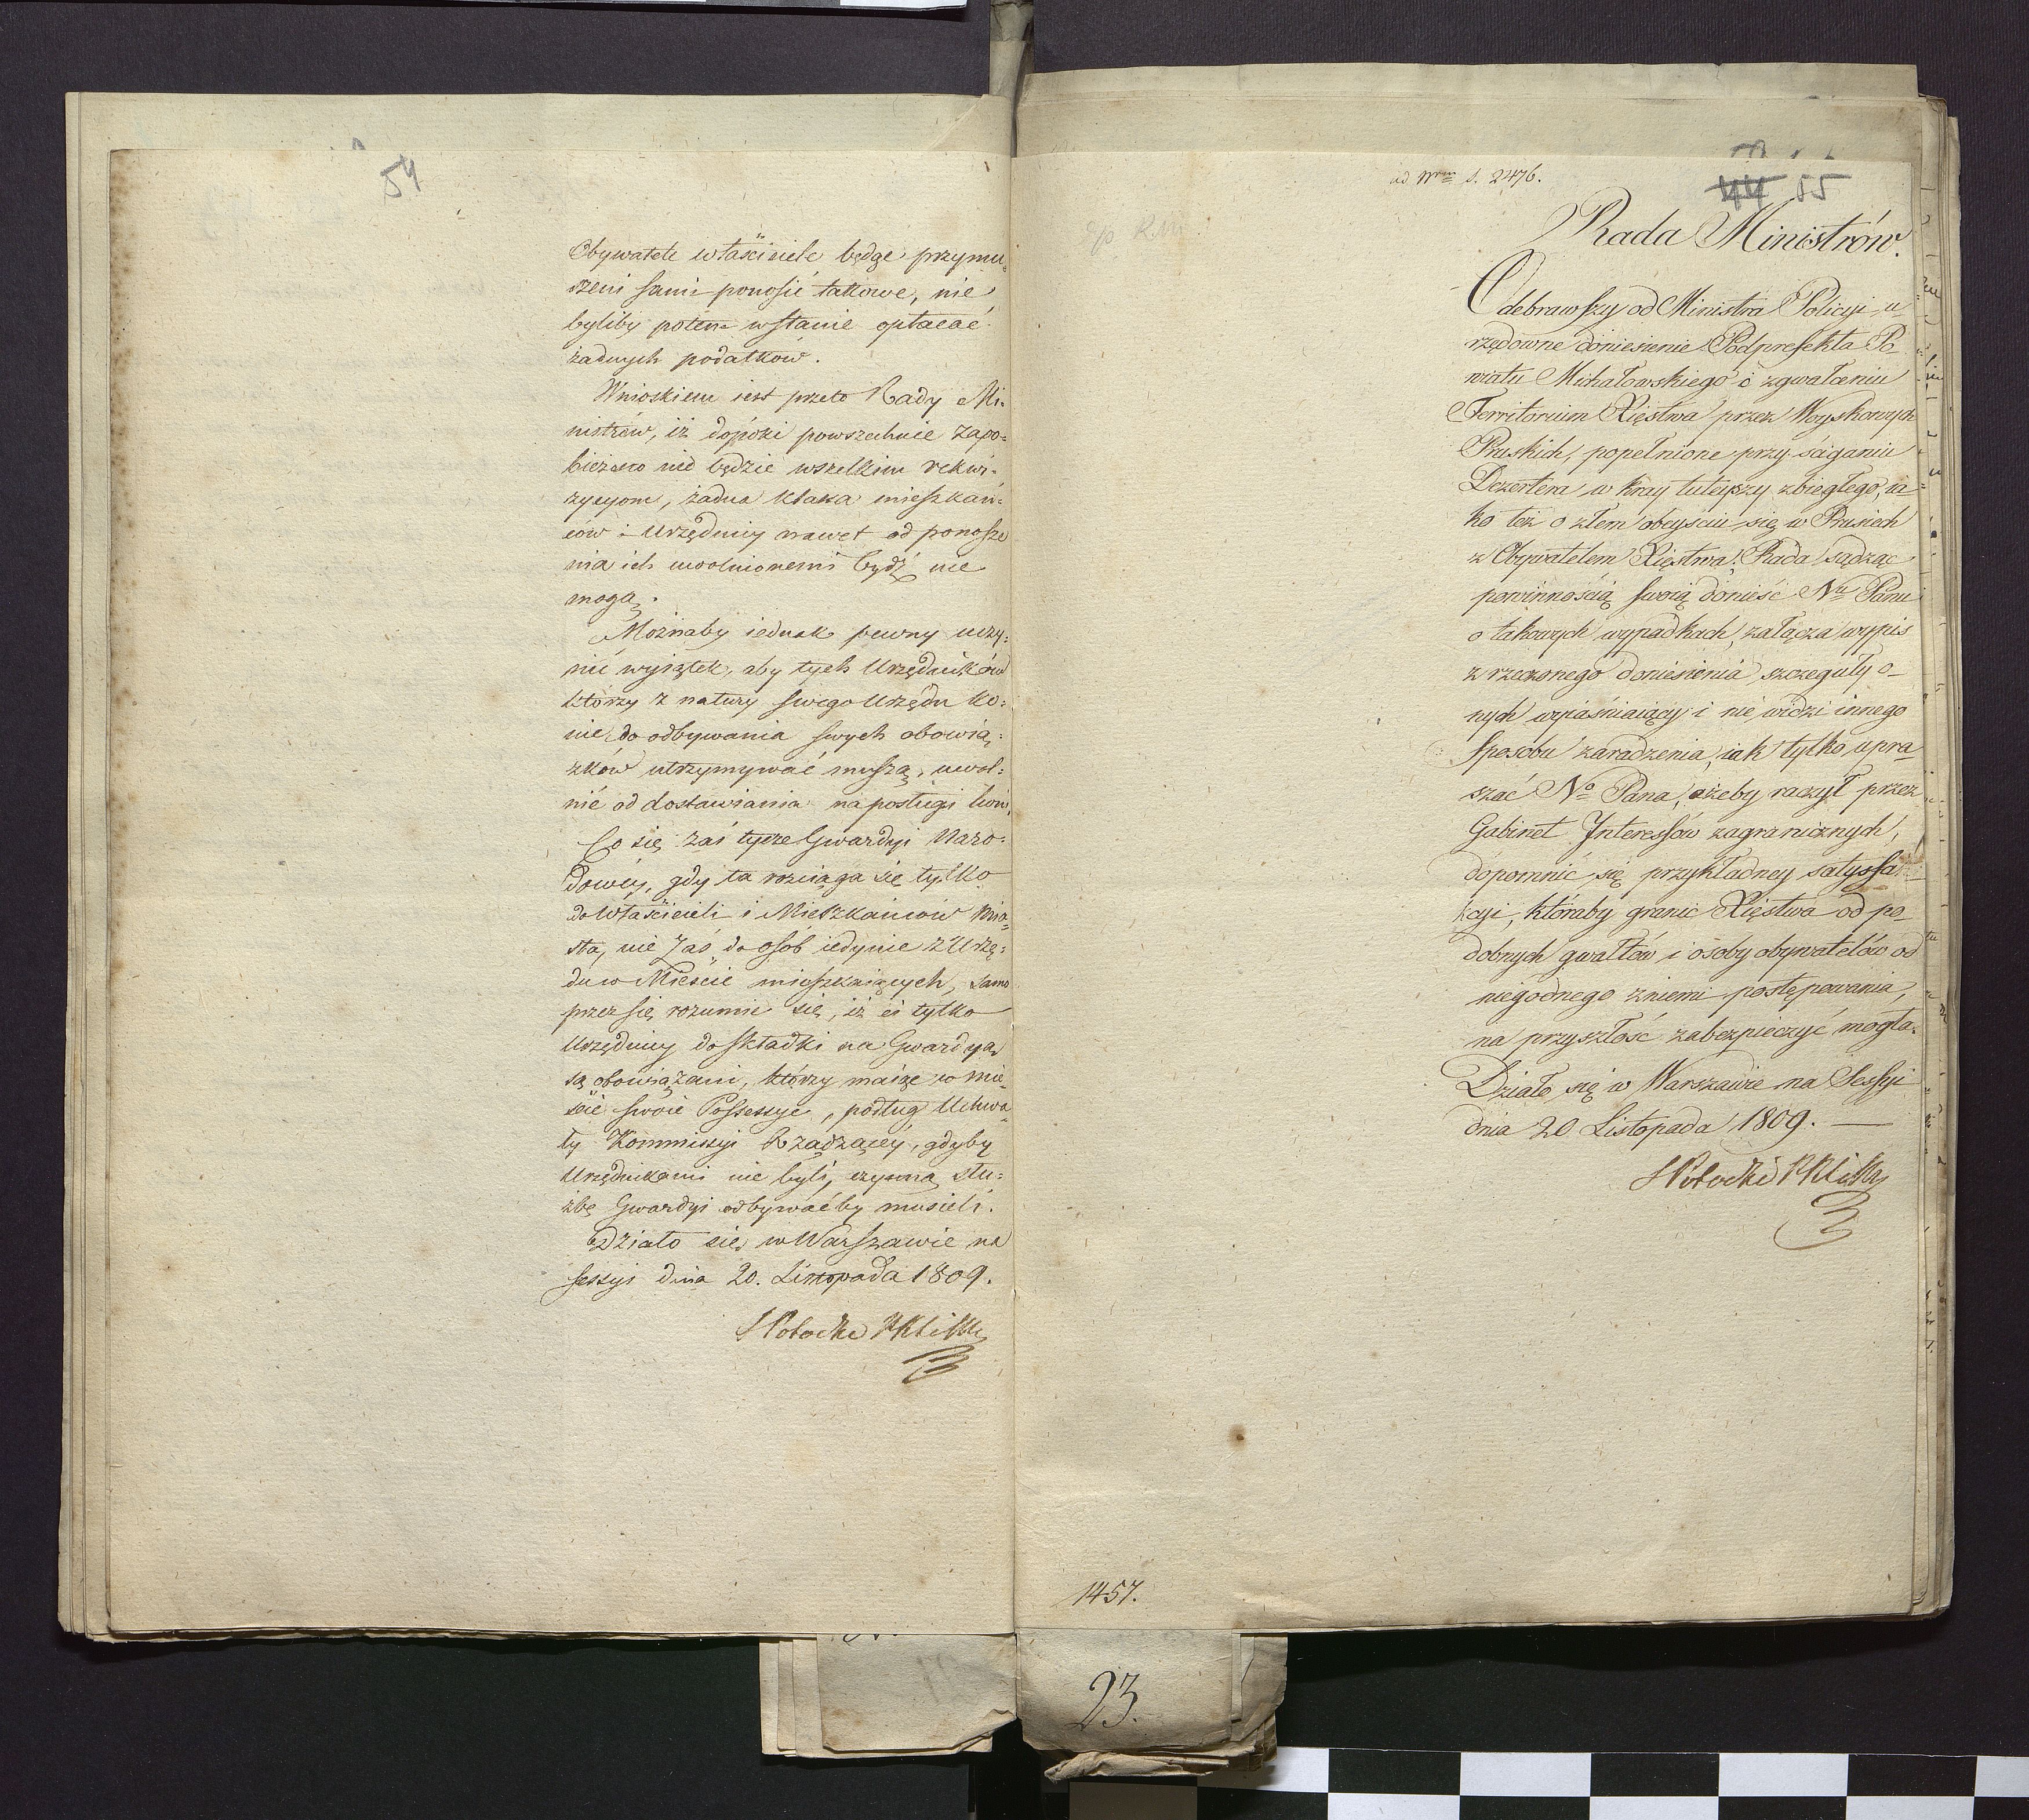 54
Obywatele właściciele będąc przymu-
szeni sami ponosić takowe, nie
byliby potem w stanie opłacać
żadnych podatków.
Wnioskiem iest przeto Rady Mi-
nistrów, iż dopóki powszechnie zapo-
bieżono nie będzie wszelkim rekwi-
zycyom, żadna klassa mieszkań-
ców i Urzędnicy nawet od ponosze
nia ich uwolnionemi bydź nie
mogą.
Możnaby iednak pewny uczy-
nić wyiątek, aby tych Urzędników
którzy z natury swego Urzędu ko-
nie do odbywania swych obowią-
zków utrzymywać muszą, uwol-
nić od dostawiania na posługi koni,
Co się zaś tycze Gwardyi Naro-
dowéy, gdy ta rozciąga się tylko
do Właścicieli i Mieszkańców Mia-
sta, nie zaś do osób iedynie z Urzę-
du w Mieście mieszkaiących, samo
przez się rozumie się, iż ci tylko
Urzędnicy do składki na Gwardyą
są obowiązani, którzy maiąc w mie-
ście swoie Possessye, podług Uchwa-
ły Kommissyi Rządzącéy, gdyby
Urzędnikami nie byli, czynną słu-
żbę Gwardyi odbywaćby musieli.
Działo się w Warszawie na
sessyi dnia 20. Listopada 1809.
S Potocki
ad Nrm S. 2476.
44 55
Rada Ministrów.
Odebrawszy od Ministra Policyi u-
rzędowne doniesienie Podprefekta Po-
wiatu Michałowskiego o zgwałceniu
Territorium Xięstwa przez Woyskowych
Pruskich, popełnione przy ściganiu
Dezertera w kray tuteyszy zbiegłego, ia-
ko też o złem obeyściu się w Prusiech
z Obywatelem Xięstwa: Rada sądząc
powinnością swoią donieść Nu Panu
o takowych wypadkach, załącza wypis
z rzeczonego doniesienia, szczeguły o-
nych wyiaśniaiący i nie widzi innego
sposobu zaradzenia, iak tylko upra-
szać No Pana, ażeby raczył przez
Gabinet Interessów zagranicznych,
dopomnieć się przykładney satysfa-
kcyi, któraby granic Xięstwa od po-
dobnych gwałtów i osoby obywatelów od
niegodnego z niemi postępowania,
na przyszłość zabezpieczyć mogła.
Działo się w Warszawie na Sessyi
dnia 20 Listopada 1809. —
S Potocki
1457.
23.